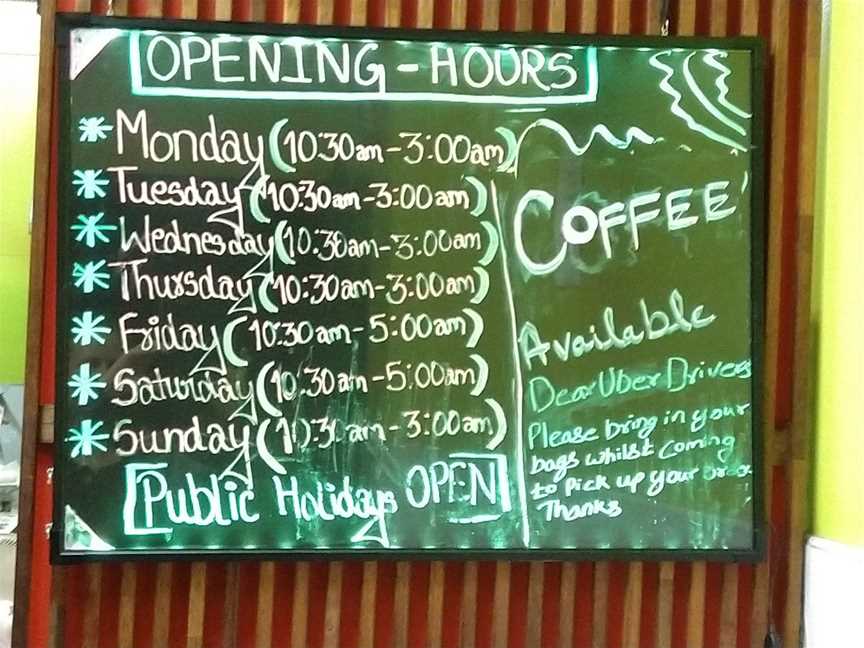 OPENING - HOURS
* Monday (10:30am - 3:00am)
* Tuesday (10:30am - 3:00am)
* Wednesday (10:30am - 3:00am)
* Thursday (10:30am - 3:00am)
* Friday (10:30am - 5:00am)
* Saturday (10:30am - 5:00am)
* Sunday (10:30am - 3:00am)
Public Holidays OPEN
COFFEE
Available
Dear Uber Drivers
Please bring in your
bags whilst coming
to pick up your order
Thanks